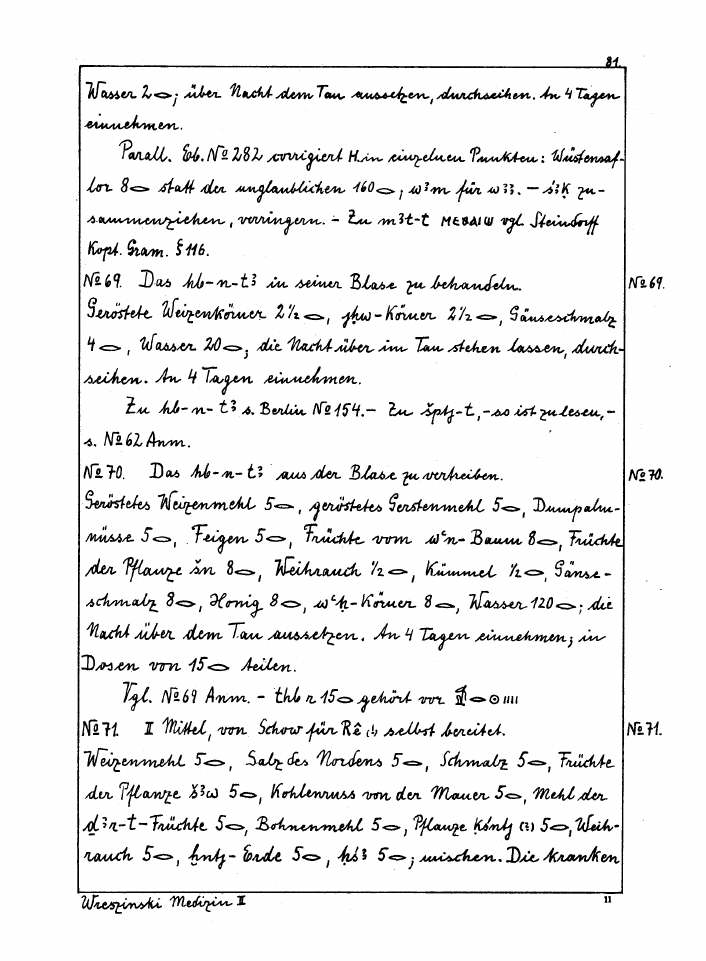 81.
Wasser 2 𓂋; über Nacht dem Tau aussetzen, durchseihen. An 4 Tagen
einnehmen.
Parall. Eb. No 282 corrigiert H. in einzelnen Punkten: Wüstensaf-
lor 8 𓂋 statt der unglaublichen 160 𓂋; wꜣm für wꜣꜣ. – sꜣḳ zu-
sammenziehen, verringern. – Zu mꜣt-t ⲙⲉⲃⲁⲓⲱ vgl. Steindorff
Kopt. Gram. § 116.
No 69. Das hb-n-tꜣ in seiner Blase zu behandeln. No 69.
Geröstete Weizenkörner 2 1/2 𓂋, jhw-Körner 2 1/2 𓂋, Gänseschmalz
4 𓂋, Wasser 20 𓂋; die Nacht über im Tau stehen lassen, durch-
seihen. An 4 Tagen einnehmen.
Zu hb-n-tꜣ s. Berlin No 154. – Zu šptj-t, – so ist zu lesen, –
s. No 62 Anm.
No 70. Das hb-n-tꜣ aus der Blase zu vertreiben. No 70.
Geröstetes Weizenmehl 5 𓂋, geröstetes Gerstenmehl 5 𓂋, Dumpalm-
nüsse 5 𓂋, Feigen 5 𓂋, Früchte vom wꜥn-Baum 8 𓂋, Früchte
der Pflanze šn 8 𓂋, Weihrauch 1/2 𓂋, Kümmel 1/2 𓂋, Gänse-
schmalz 8 𓂋, Honig 8 𓂋, wꜥḥ-Körner 8 𓂋, Wasser 120 𓂋; die
Nacht über dem Tau aussetzen. An 4 Tagen einnehmen; in
Dosen von 15 𓂋 teilen.
Vgl. No 69 Anm. – thb r 15 𓂋 gehört vor 𓂋 ⊙ ıııı
No 71. II Mittel, von Schow für Rê selbst bereitet. No 71.
Weizenmehl 5 𓂋, Salz des Nordens 5 𓂋, Schmalz 5 𓂋, Früchte
der Pflanze šꜣw 5 𓂋, Kohlenruss von der Mauer 5 𓂋, Mehl der
ḏꜣr-t-Früchte 5 𓂋, Bohnenmehl 5 𓂋, Pflanze ḳśntj (?) 5 𓂋, Weih-
rauch 5 𓂋, ḫntj-Erde 5 𓂋, ḥśꜣ 5 𓂋; mischen. Die kranken
Wreszinski Medizin II 11